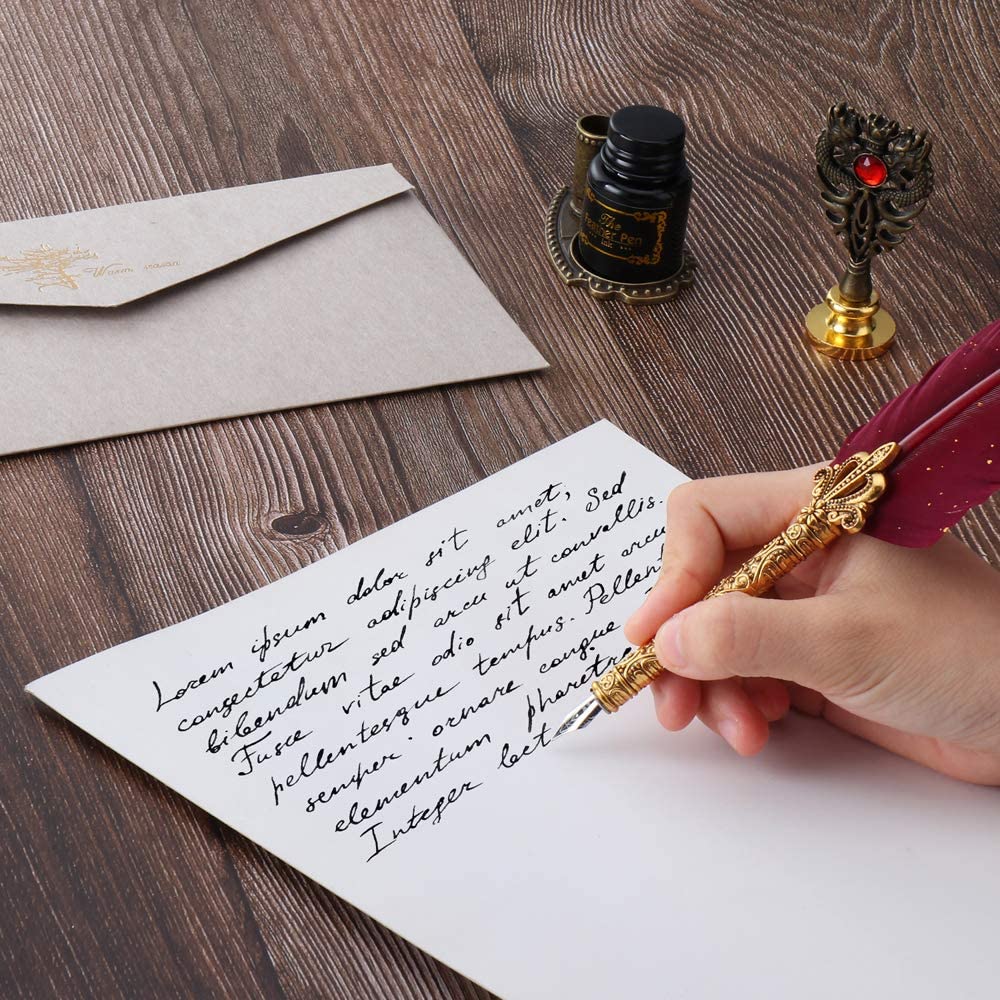 Warm
The
Feather Pen
ink
Lorem ipsum dolor sit amet,
consectetur adipiscing elit. Sed
bibendum sed arcu ut convallis.
Fusce vitae odio sit amet arcu
pellentesque tempus. Pellent
semper. ornare congue
elementum pharetre
Integer lect